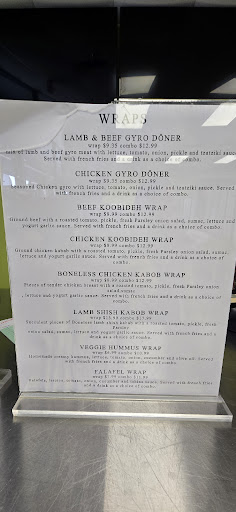 WRAPS
LAMB & BEEF GYRO DÖNER
wrap $9.35 combo $12.99
mix of lamb and beef gyro meat with lettuce, tomato, onion, pickle and tzatziki sauce
Served with french fries and a drink as a choice of combo.
CHICKEN GYRO DÖNER
wrap $9.35 combo $12.99
seasoned Chicken gyro with lettuce, tomato, onion, pickle and tzatziki sauce. Served
with french fries and a drink as a choice of combo.
BEEF KOOBIDEH WRAP
wrap combo
Ground beef with a roasted tomato, pickle, fresh Parsley onion salad, sumac, lettuce and
yogurt garlic sauce. Served with french fries and a drink as a choice of combo.
CHICKEN KOOBIDEH WRAP
wrap combo $12.99
Ground chicken kabob with a roasted tomato, pickle, fresh Parsley onion salad, sumac,
lettuce and yogurt garlic sauce. Served with french fries and a drink as a choice of
combo.
BONELESS CHICKEN KABOB WRAP
wrap combo $12.99
Pieces of tender chicken breast with a roasted tomato, pickle, fresh Parsley onion
salad
, lettuce and yogurt garlic sauce. Served with french fries and a drink as a choice of
combo.
LAMB SHISH KABOB WRAP
wrap combo
Succulent pieces of boneless lamb shish kabob with a roasted tomato, pickle, fresh
Parsley
onion salad, sumac, lettuce and yogurt garlic sauce. Served with french fries and a
drink as a choice of combo.
VEGGIE HUMMUS WRAP
wrap combo
creamy hummus, lettuce, tomato, onion, cucumber and olive oil. Served
with french fries and a drink as a choice of combo.
FALAFEL WRAP
wrap combo
falafel, lettuce, tomato, onion, cucumber and sauce. Served with french fries
and a drink as a choice of combo.